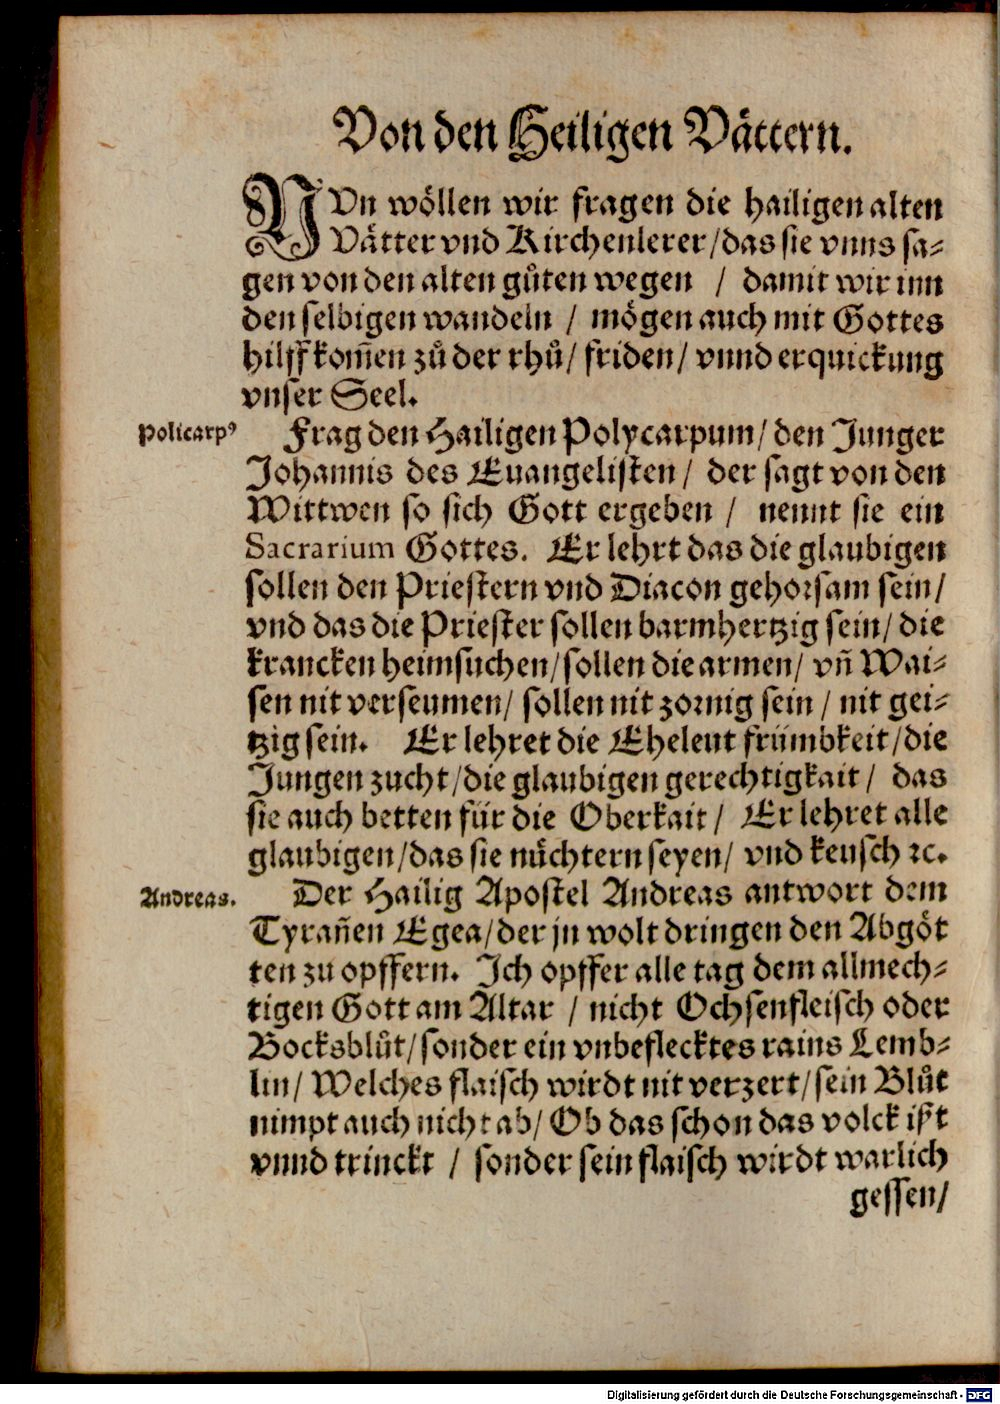 Von den Heiligen Vättern.
NVn wöllen wir fragen die hailigen alten
Vätter vnd Kirchenlerer/das sie vnns sa⸗
gen von den alten gůten wegen / damit wir inn
den selbigen wandeln / mögen auch mit Gottes
hilff kom̃en zů der rhů/ friden/ vnnd erquickung
vnser Seel.
Policarpꝰ
Frag den Hailigen Polycarpum/ den Junger
Johannis des Euangelisten/ der sagt von den
Wittwen so sich Gott ergeben / nennt sie ein
Sacrarium Gottes. Er lehrt das die glaubigen
sollen den Priestern vnd Diacon gehorsam sein/
vnd das die Priester sollen barmhertzig sein/ die
krancken heimsuchen/sollen die armen/ vñ Wai⸗
sen nit verseumen/ sollen nit zornig sein / nit gei⸗
tzig sein. Er lehret die Eheleut frümbkeit/die
Jungen zucht/die glaubigen gerechtigkait/ das
sie auch betten für die Oberkait/ Er lehret alle
glaubigen/das sie nüchtern seyen/ vnd keusch ꝛc.
Andreas.
Der Hailig Apostel Andreas antwort dem
Tyrañen Egea/der jn wolt dringen den Abgöt
ten zu opffern. Ich opffer alle tag dem allmech⸗
tigen Gott am Altar / nicht Ochsenfleisch oder
Bocksblůt/sonder ein vnbeflecktes rains Lemb⸗
lin/ Welches flaisch wirdt nit verzert/sein Blůt
nimpt auch nicht ab/ Ob das schon das volck ißt
vnnd trinckt / sonder sein flaisch wirdt warlich
gessen/
Digitalisierung gefördert durch die Deutsche Forschungsgemeinschaft - DFG